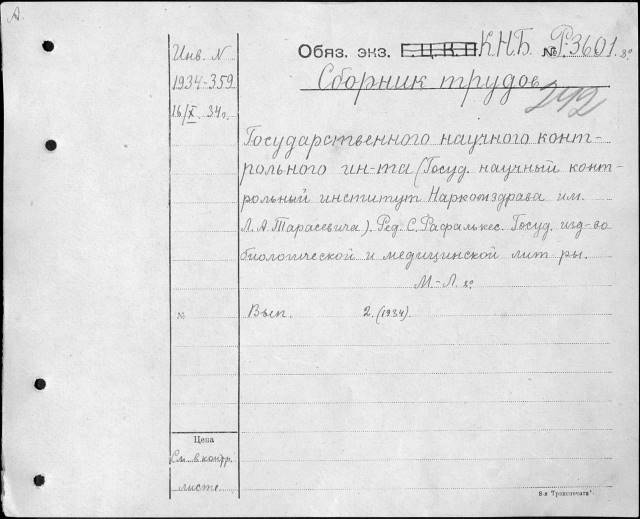 А.
Инв. N
1934-359
16/X. 34г.
Обяз. экз. Г.Ц.К.П К.Н.Б. № Р-3601. 8º
Сборник трудов
242
Государственного научного конт-
рольного ин-та (Госуд. научный конт-
рольный институт Наркомздрава им.
Л. А. Тарасевича). Ред. С. Рафалькес. Госуд. изд-во
биологической и медицинской лит-ры.
М.-Л. 8º
№ Вып. 2. (1934).
Цена
См. в контр.
листе
8-я "Транспечати".